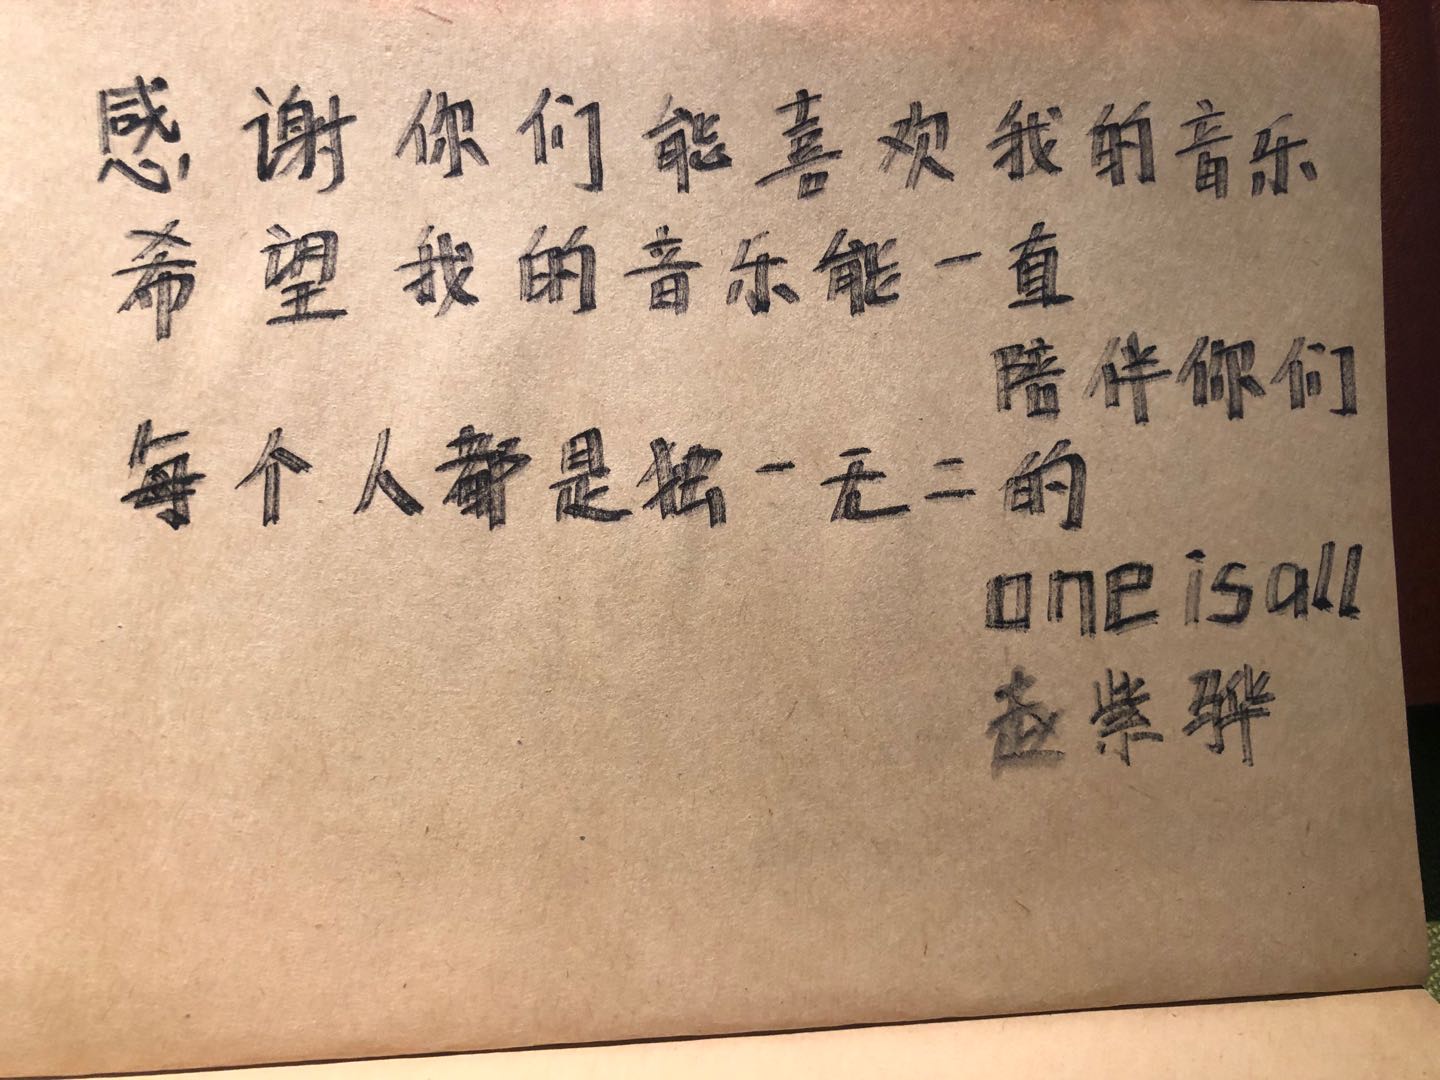 感谢你们能喜欢我的音乐
希望我的音乐能一直
陪伴你们
每个人都是独一无二的
one is all
赵紫骅